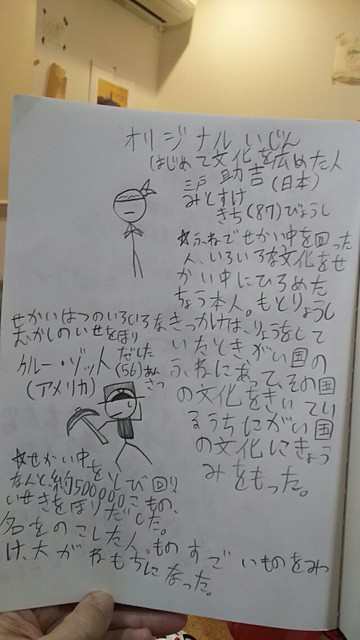 オリジナルいじん
はじめて文化を広めた人
三戸 助吉(日本)
みと すけ
きち(87)びょうし
★ふねでせかい中を回った
人。いろいろな文化をせ
かい中にひろめた
ちょう本人。もとりょうし
きっかけは、りょうをして
いたとき、がい国の
ふねにあって、その国
の文化をきいてい
るうちにがい国
の文化にきょう
みをもった。
せかいはつのいろいろな
むかしのいせきをほり
だした
クルー・ゾット人
(56)あんさつ
(アメリカ)
★せかい中をとび回り
なんと約500000こもの、
いせきをほりだした。
名をのこした人。ものすごいものをみつ
け、大がねもちになった。